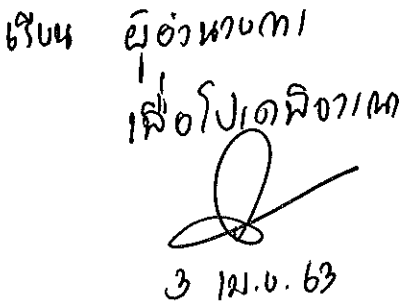 เรียน ผู้อำนวยการ
เพื่อโปรดพิจารณา
3 เม.ย. 63